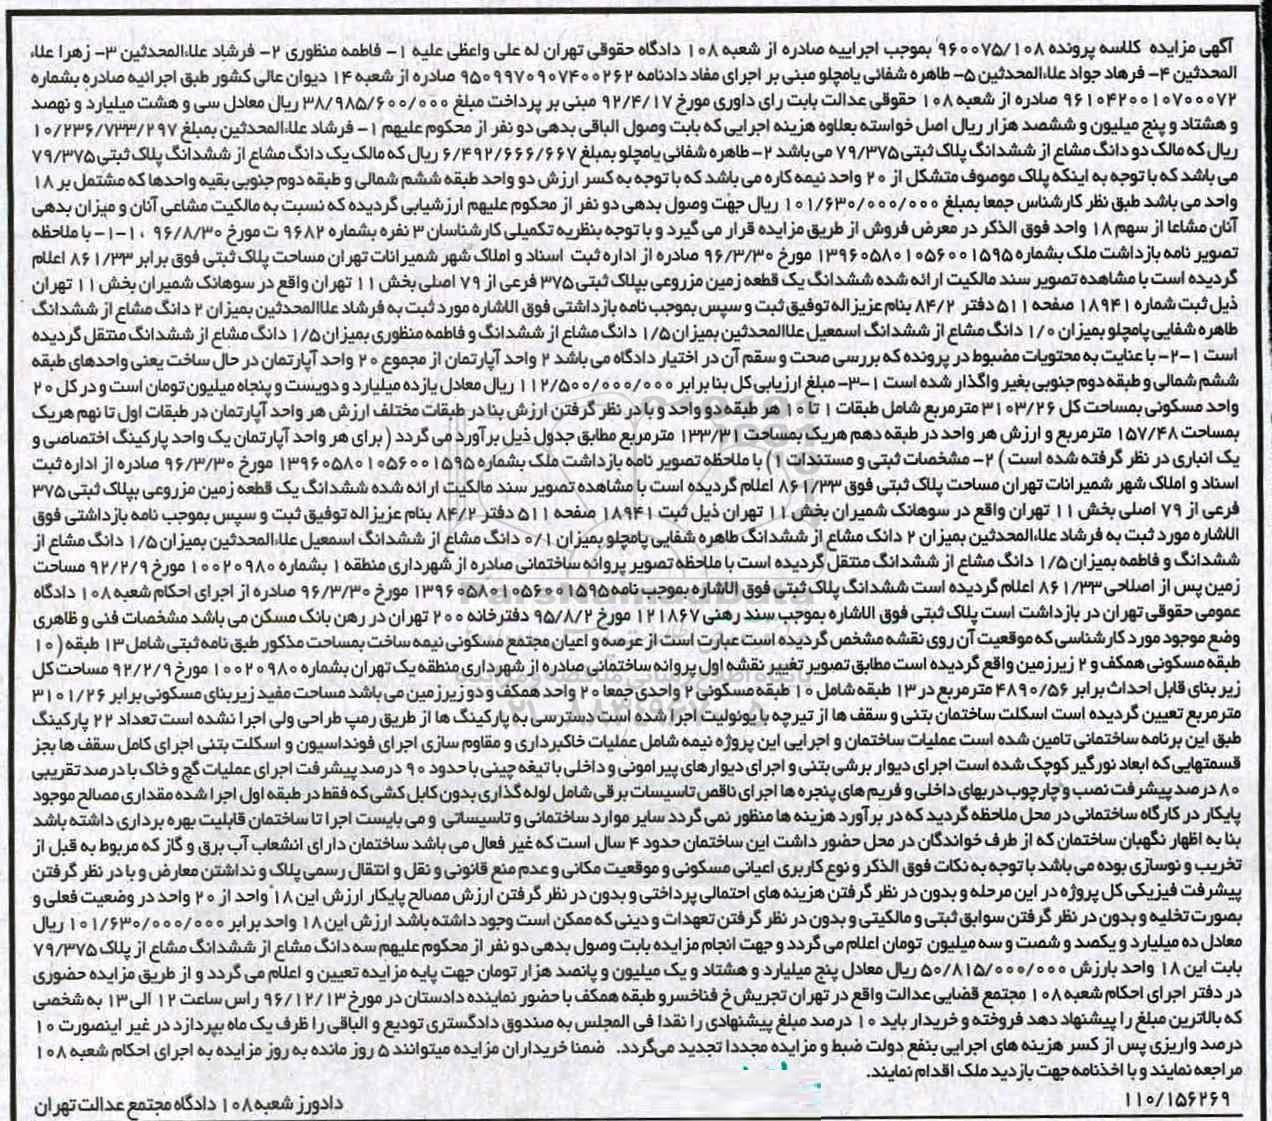 آگهی مزایده کلاسه پرونده ۹۶۰۰۷۵/۱۰۸ بموجب اجراییه صادره از شعبه ۱۰۸ دادگاه حقوقی تهران له علی واعظی علیه ۱- فاطمه منظوری ۲- فرشاد علاءالمحدثین ۳- زهرا علاء
المحدثین ۴- فرهاد جواد علاءالمحدثین ۵- طاهره شفائی یامچلو مبنی بر اجرای مفاد دادنامه ۹۵۰۹۹۷۰۹۰۷۴۰۰۲۶۲ صادره از شعبه ۱۴ دیوان عالی کشور طبق اجرائیه صادره بشماره
۹۶۱۰۴۲۰۰۱۰۷۰۰۰۷۲ صادره از شعبه ۱۰۸ حقوقی عدالت بابت رای داوری مورخ ۹۲/۴/۱۷ مبنی بر پرداخت مبلغ ۳۸/۹۸۵/۶۰۰/۰۰۰ ریال معادل سی و هشت میلیارد و نهصد
و هشتاد و پنج میلیون و ششصد هزار ریال اصل خواسته بعلاوه هزینه اجرایی که بابت وصول الباقی بدهی دو نفر از محکوم علیهم ۱- فرشاد علاءالمحدثین بمبلغ ۱۰/۲۳۶/۷۳۳/۲۹۷
ریال که مالک دو دانگ مشاع از ششدانگ پلاک ثبتی ۷۹/۳۷۵ می باشد ۲- طاهره شفائی یامچلو بمبلغ ۶/۴۹۲/۶۶۶/۶۶۷ ریال که مالک یک دانگ مشاع از ششدانگ پلاک ثبتی ۷۹/۳۷۵
می باشد که با توجه به اینکه پلاک موصوف متشکل از ۲۰ واحد نیمه کاره می باشد که با توجه به کسر ارزش دو واحد طبقه ششم شمالی و طبقه دوم جنوبی بقیه واحدها که مشتمل بر ۱۸
واحد می باشد طبق نظر کارشناس جمعا بمبلغ ۱۰۱/۶۳۰/۰۰۰/۰۰۰ ریال جهت وصول بدهی دو نفر از محکوم علیهم ارزشیابی گردیده که نسبت به مالکیت مشاعی آنان و میزان بدهی
آنان مشاعا از سهم ۱۸ واحد فوق الذکر در معرض فروش از طریق مزایده قرار می گیرد و با توجه بنظریه تکمیلی کارشناسان ۳ نفره بشماره ۹۶۸۲ ت مورخ ۹۶/۸/۳۰ ، ۱-۱- با ملاحظه
تصویر نامه بازداشت ملک بشماره ۱۳۹۶۰۵۸۰۱۰۵۶۰۰۱۵۹۵ مورخ ۹۶/۳/۳۰ صادره از اداره ثبت اسناد و املاک شهر شمیرانات تهران مساحت پلاک ثبتی فوق برابر ۸۶۱/۳۳ اعلام
گردیده است با مشاهده تصویر سند مالکیت ارائه شده ششدانگ یک قطعه زمین مزروعی بپلاک ثبتی ۳۷۵ فرعی از ۷۹ اصلی بخش ۱۱ تهران واقع در سوهانک شمیران بخش ۱۱ تهران
ذیل ثبت شماره ۱۸۹۴۱ صفحه ۵۱۱ دفتر ۸۴/۲ بنام عزیزاله توفیق ثبت و سپس بموجب نامه بازداشتی فوق الاشاره مورد ثبت به فرشاد علاالمحدثین بمیزان ۲ دانگ مشاع از ششدانگ
طاهره شفایی پامچلو بمیزان ۱/۰ دانگ مشاع از ششدانگ اسمعیل علاالمحدثین بمیزان ۱/۵ دانگ مشاع از ششدانگ و فاطمه منظوری بمیزان ۱/۵ دانگ مشاع از ششدانگ منتقل گردیده
است ۱-۲- با عنایت به محتویات مضبوط در پرونده که بررسی صحت و سقم آن در اختیار دادگاه می باشد ۲ واحد آپارتمان از مجموع ۲۰ واحد آپارتمان در حال ساخت یعنی واحدهای طبقه
ششم شمالی و طبقه دوم جنوبی بغیر واگذار شده است ۱-۳- مبلغ ارزیابی کل بنا برابر ۱۱۲/۵۰۰/۰۰۰/۰۰۰ ریال معادل یازده میلیارد و دویست و پنجاه میلیون تومان است و در کل ۲۰
واحد مسکونی بمساحت کل ۳۱۰۳/۲۶ مترمربع شامل طبقات ۱ تا ۱۰ هر طبقه دو واحد و با در نظر گرفتن ارزش بنا در طبقات مختلف ارزش هر واحد آپارتمان در طبقات اول تا نهم هریک
بمساحت ۱۵۷/۴۸ مترمربع و ارزش هر واحد در طبقه دهم هریک بمساحت ۱۳۳/۳۱ مترمربع مطابق جدول ذیل برآورد می گردد ( برای هر واحد آپارتمان یک واحد پارکینگ اختصاصی و
یک انباری در نظر گرفته شده است ) ۲- مشخصات ثبتی و مستندات ۱) با ملاحظه تصویر نامه بازداشت ملک بشماره ۱۳۹۶۰۵۸۰۱۰۵۶۰۰۱۵۹۵ مورخ ۹۶/۳/۳۰ صادره از اداره ثبت
اسناد و املاک شهر شمیرانات تهران مساحت پلاک ثبتی فوق ۸۶۱/۳۳ اعلام گردیده است با مشاهده تصویر سند مالکیت ارائه شده ششدانگ یک قطعه زمین مزروعی بپلاک ثبتی ۳۷۵
فرعی از ۷۹ اصلی بخش ۱۱ تهران واقع در سوهانک شمیران بخش ۱۱ تهران ذیل ثبت ۱۸۹۴۱ صفحه ۵۱۱ دفتر ۸۴/۲ بنام عزیزاله توفیق ثبت و سپس بموجب نامه بازداشتی فوق
الاشاره مورد ثبت به فرشاد علاءالمحدثین بمیزان ۲ دانگ مشاع از ششدانگ طاهره شفایی پامچلو بمیزان ۰/۱ دانگ مشاع از ششدانگ اسمعیل علاءالمحدثین بمیزان ۱/۵ دانگ مشاع از
ششدانگ و فاطمه بمیزان ۱/۵ دانگ مشاع از ششدانگ منتقل گردیده است با ملاحظه تصویر پروانه ساختمانی صادره از شهرداری منطقه ۱ بشماره ۱۰۰۲۰۹۸۰ مورخ ۹۲/۲/۹ مساحت
زمین پس از اصلاحی ۸۶۱/۳۳ اعلام گردیده است ششدانگ پلاک ثبتی فوق الاشاره بموجب نامه ۱۳۹۶۰۵۸۰۱۰۵۶۰۰۱۵۹۵ مورخ ۹۶/۳/۳۰ صادره از اجرای احکام شعبه ۱۰۸ دادگاه
عمومی حقوقی تهران در بازداشت است پلاک ثبتی فوق الاشاره بموجب سند رهنی ۱۲۱۸۶۷ مورخ ۹۵/۸/۲ دفترخانه ۲۰۰ تهران در رهن بانک مسکن می باشد مشخصات فنی و ظاهری
وضع موجود مورد کارشناسی که موقعیت آن روی نقشه مشخص گردیده است عبارت است از عرصه و اعیان مجتمع مسکونی نیمه ساخت بمساحت مذکور طبق نامه ثبتی شامل ۱۳ طبقه ( ۱۰
طبقه مسکونی همکف و ۲ زیرزمین واقع گردیده است مطابق تصویر تغییر نقشه اول پروانه ساختمانی صادره از شهرداری منطقه یک تهران بشماره ۱۰۰۲۰۹۸۰ مورخ ۹۲/۲/۹ مساحت کل
زیر بنای قابل احداث برابر ۴۸۹۰/۵۶ مترمربع در ۱۳ طبقه شامل ۱۰ طبقه مسکونی ۲ واحدی جمعا ۲۰ واحد همکف و دو زیرزمین می باشد مساحت مفید زیربنای مسکونی برابر ۳۱۰۱/۲۶
مترمربع تعیین گردیده است اسکلت ساختمان بتنی و سقف ها از تیرچه با یونولیت اجرا شده است دسترسی به پارکینگ ها از طریق رمپ طراحی ولی اجرا نشده است تعداد ۲۲ پارکینگ
طبق این برنامه ساختمانی تامین شده است عملیات ساختمان و اجرایی این پروژه نیمه شامل عملیات خاکبرداری و مقاوم سازی اجرای فونداسیون و اسکلت بتنی اجرای کامل سقف ها بجز
قسمتهایی که ابعاد نورگیر کوچک شده است اجرای دیوار برشی بتنی و اجرای دیوارهای پیرامونی و داخلی با تیغه چینی با حدود ۹۰ درصد پیشرفت اجرای عملیات گچ و خاک با درصد تقریبی
۸۰ درصد پیشرفت نصب و چارچوب دربهای داخلی و فریم های پنجره ها اجرای ناقص تاسیسات برقی شامل لوله گذاری بدون کابل کشی که فقط در طبقه اول اجرا شده مقداری مصالح موجود
پایکار در کارگاه ساختمانی در محل ملاحظه گردید که در برآورد هزینه ها منظور نمی گردد سایر موارد ساختمانی و تاسیساتی و می بایست اجرا تا ساختمان قابلیت بهره برداری داشته باشد
بنا به اظهار نگهبان ساختمان که از طرف خواندگان در محل حضور داشت این ساختمان حدود ۴ سال است که غیر فعال می باشد ساختمان دارای انشعاب آب برق و گاز که مربوط به قبل از
تخریب و نوسازی بوده می باشد با توجه به نکات فوق الذکر و نوع کاربری اعیانی مسکونی و موقعیت مکانی و عدم منع قانونی و نقل و انتقال رسمی پلاک و نداشتن معارض و با در نظر گرفتن
پیشرفت فیزیکی کل پروژه در این مرحله و بدون در نظر گرفتن هزینه های احتمالی پرداختی و بدون در نظر گرفتن ارزش مصالح پایکار ارزش این ۱۸ واحد از ۲۰ واحد در وضعیت فعلی و
بصورت تخلیه و بدون در نظر گرفتن سوابق ثبتی و مالکیتی و بدون در نظر گرفتن تعهدات و دینی که ممکن است وجود داشته باشد ارزش این ۱۸ واحد برابر ۱۰۱/۶۳۰/۰۰۰/۰۰۰ ریال
معادل ده میلیارد و یکصد و شصت و سه میلیون تومان اعلام می گردد و جهت انجام مزایده بابت وصول بدهی دو نفر از محکوم علیهم سه دانگ مشاع از ششدانگ مشاع از پلاک ۷۹/۳۷۵
بابت این ۱۸ واحد بارزش ۵۰/۸۱۵/۰۰۰/۰۰۰ ریال معادل پنج میلیارد و هشتاد و یک میلیون و پانصد هزار تومان جهت پایه مزایده تعیین و اعلام می گردد و از طریق مزایده حضوری
در دفتر اجرای احکام شعبه ۱۰۸ مجتمع قضایی عدالت واقع در تهران تجریش خ فناخسرو طبقه همکف با حضور نماینده دادستان در مورخ ۹۶/۱۲/۱۳ راس ساعت ۱۲ الی ۱۳ به شخصی
که بالاترین مبلغ را پیشنهاد دهد فروخته و خریدار باید ۱۰ درصد مبلغ پیشنهادی را نقدا فی المجلس به صندوق دادگستری تودیع و الباقی را ظرف یک ماه بپردازد در غیر اینصورت ۱۰
درصد واریزی پس از کسر هزینه های اجرایی بنفع دولت ضبط و مزایده مجددا تجدید می‌گردد. ضمنا خریداران مزایده میتوانند ۵ روز مانده به روز مزایده به اجرای احکام شعبه ۱۰۸
مراجعه نمایند و با اخذنامه جهت بازدید ملک اقدام نمایند.
۱۱۰/۱۵۶۲۶۹
دادورز شعبه ۱۰۸ دادگاه مجتمع عدالت تهران
ParsNamadData